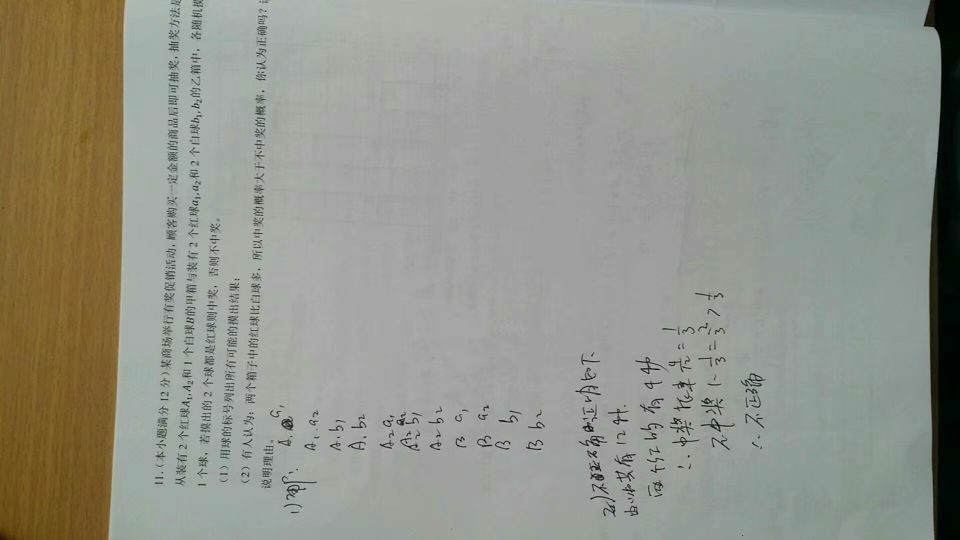 11.(本小题满分12分)某商场举行有奖促销活动,顾客购买一定金额的商品后即可抽奖,抽奖方法是
从装有2个红球A₁,A₂和1个白球B的甲箱与装有2个红球a₁,a₂和2个白球b₁,b₂的乙箱中,各随机摸
1个球,若摸出的2个球都是红球则中奖,否则不中奖。
(1)用球的标号列出所有可能的摸出结果;
(2)有人认为:两个箱子中的红球比白球多,所以中奖的概率大于不中奖的概率,你认为正确吗?
说明理由。
1)解: A₁ a₁
A₁ a₂
A₁ b₁
A₁ b₂
A₂ a₁
A₂ a₂
A₂ b₁
A₂ b₂
B a₁
B a₂
B b₁
B b₂
2)不正确 证明如下
由(1)知共有12种.
两个红的有4种
∴中奖概率 4/12 = 1/3
不中奖 1-1/3 = 2/3 > 1/3
∴不正确